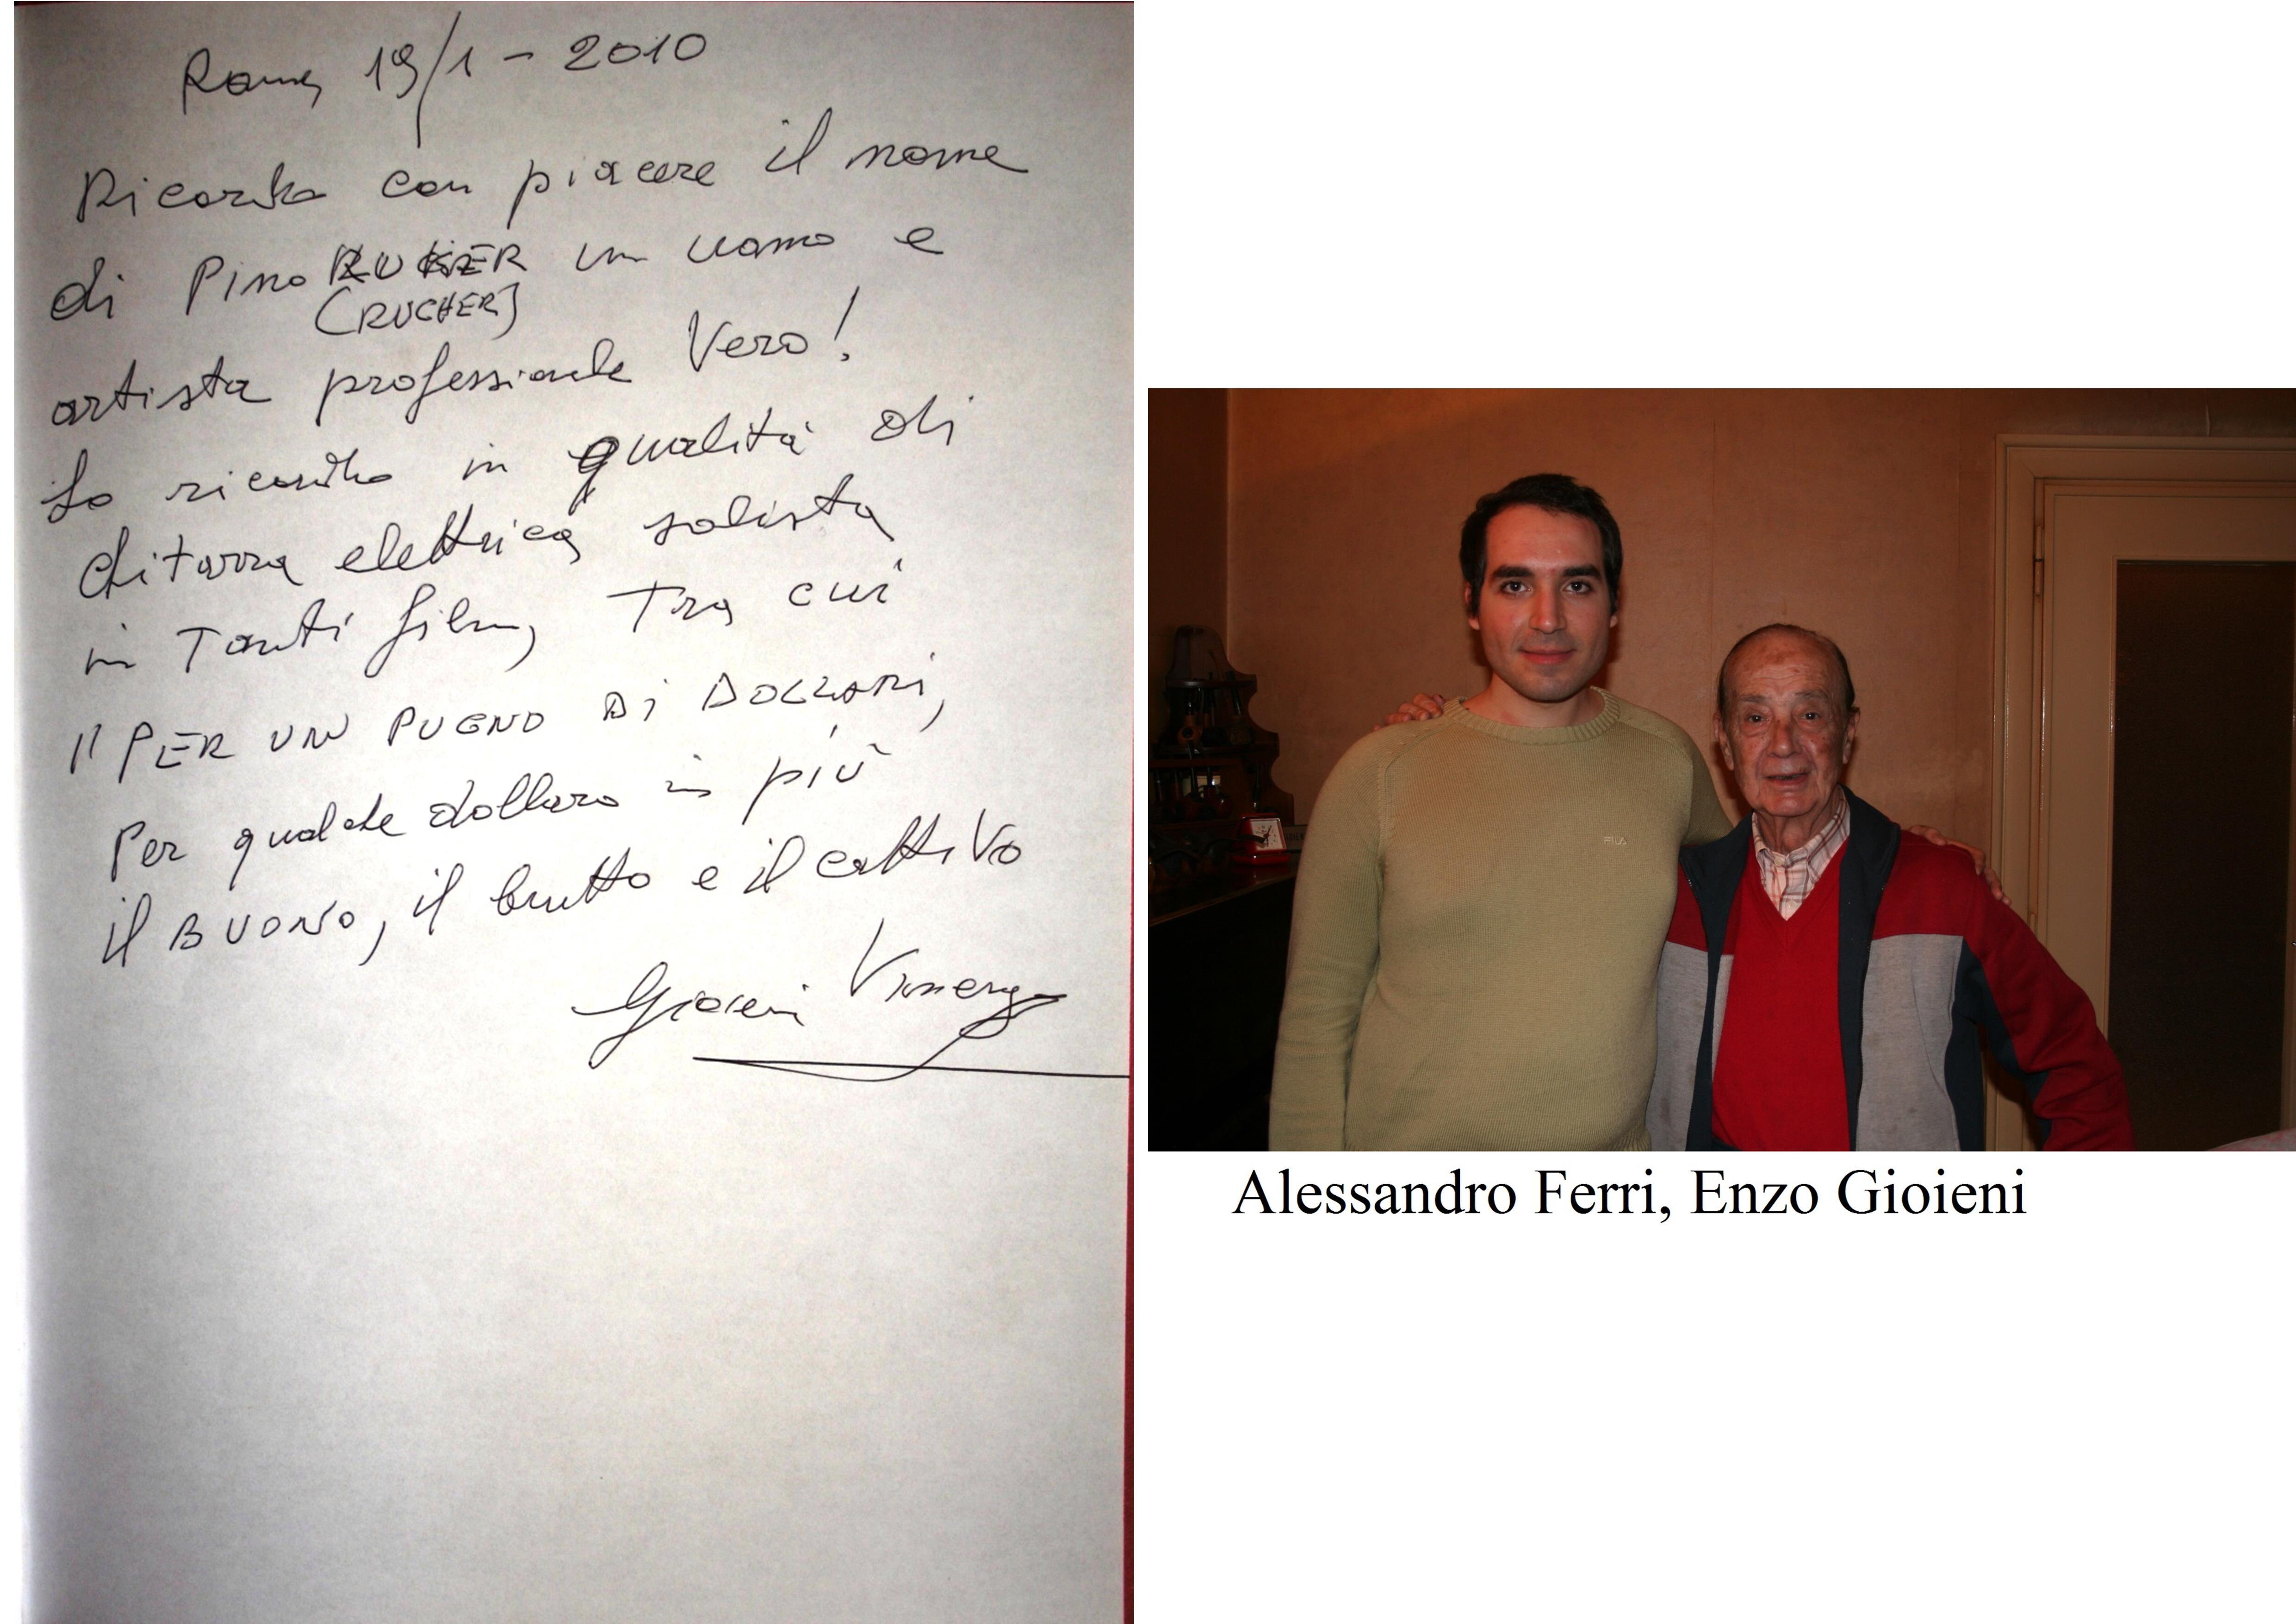 Roma, 19/1 - 2010
Ricordo con piacere il nome
di Pino RUKER un uomo e
(RUCHER)
artista professionale Vero!
Lo ricordo in qualità di
chitarra elettrica solista
in Tanti film, Tra cui
"PER UN PUGNO DI DOLLARI,
Per qualche dollaro in più
il BUONO, il brutto e il cattivo
Gioieni Vincenzo
FILA
Alessandro Ferri, Enzo Gioieni